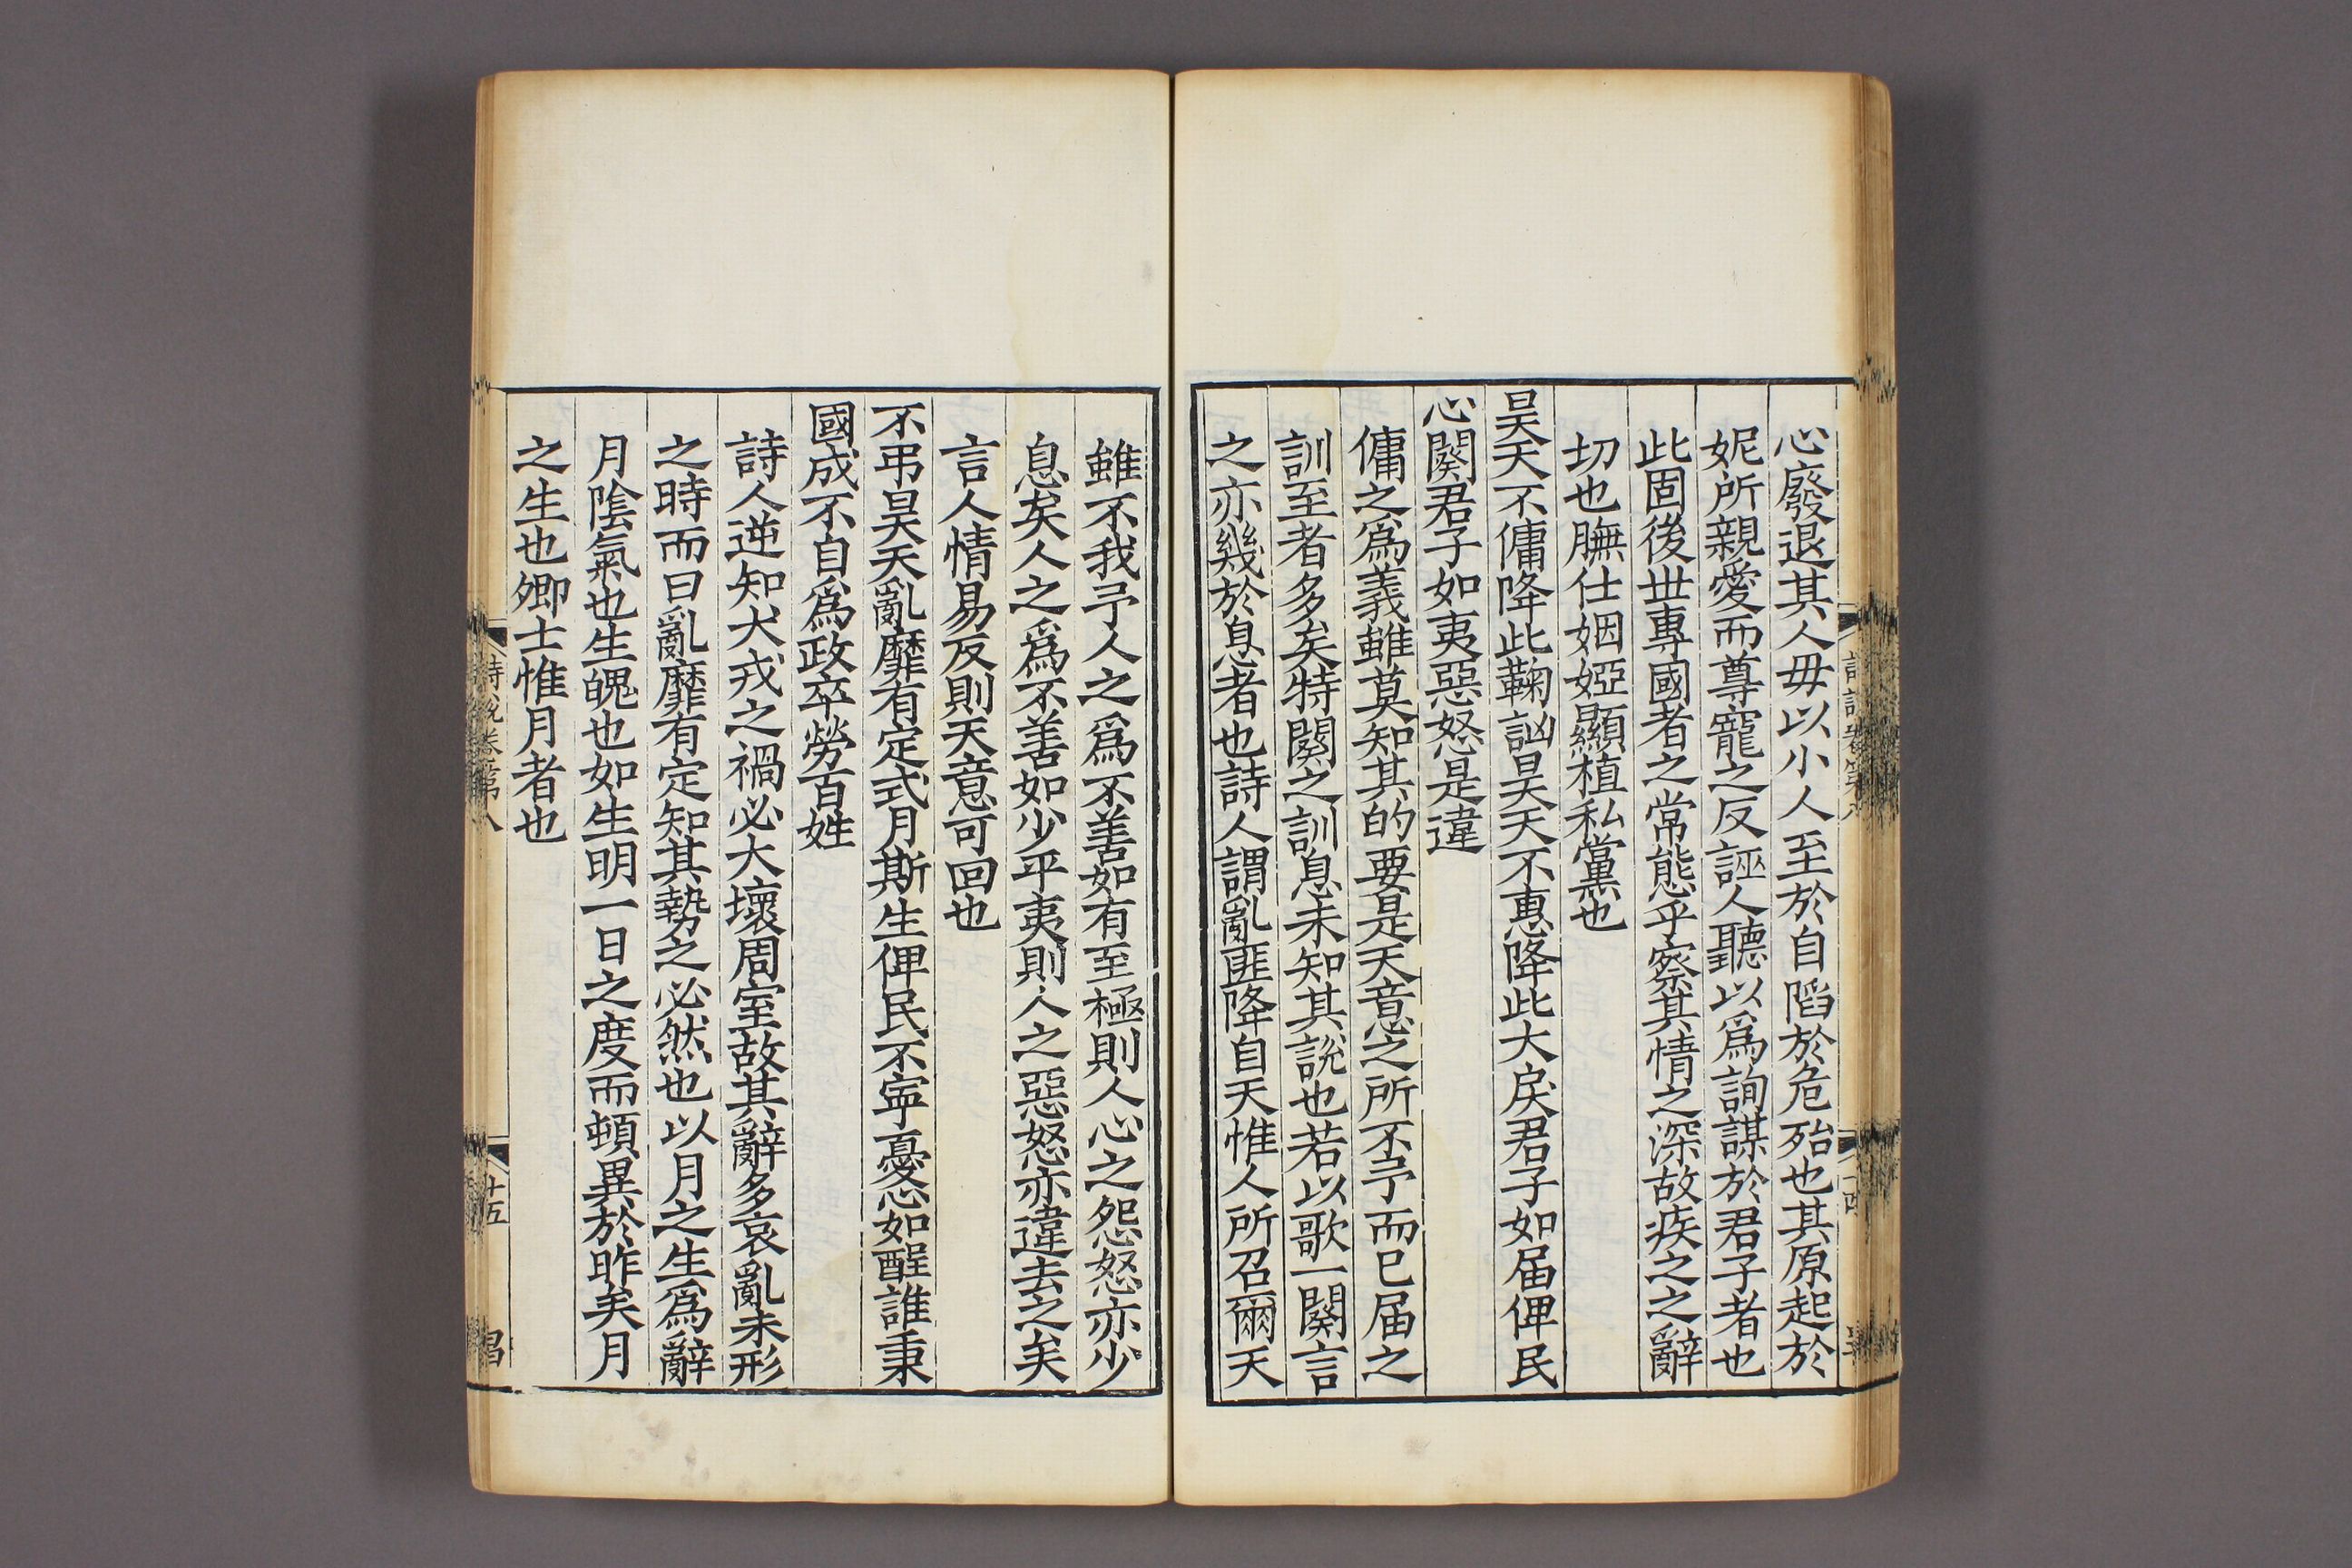 心廢退其人毋以小人至於自䧟於危殆也其原起於
妮所親愛而尊寵之反誣人聽以爲詢謀於君子者也
此固後世專國者之常態乎察其情之深故疾之之辭
切也膴仕姻婭顯植私黨也
昊天不傭降此鞠訩昊天不惠降此大戾君子如届俾民
心闋君子如夷惡怒是違
傭之爲義雖莫知其的要是天意之所不予而已届之
訓至者多矣特闋之訓息未知其說也若以歌一闋言
之亦幾於息者也詩人謂亂匪降自天惟人所召爾天
雖不我予人之爲不善如有至極則人心之怨怒亦少
息矣人之爲不善如少平夷則人之惡怒亦違去之矣
言人情易反則天意可回也
不弔昊天亂靡有定式月斯生俾民不寜憂心如酲誰秉
國成不自爲政卒勞百姓
詩人逆知犬戎之禍必大壞周室故其辭多哀亂未形
之時而曰亂靡有定知其勢之必然也以月之生爲辭
月陰氣也生魄也如生明一日之度而頓異於昨矣月
之生也卿士惟月者也
詩說卷第八
十五
昌